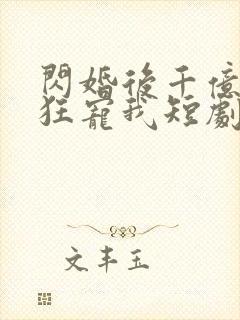 閃婚後千億
狂寵我短劇
文丰玉